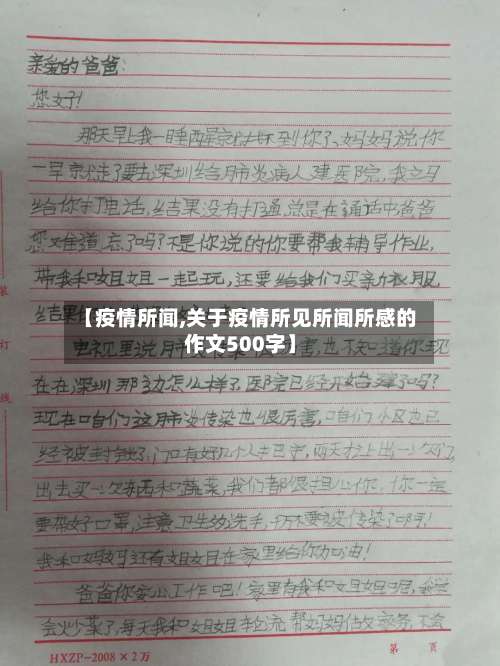 亲爱的爸爸:
您好!
那天早上我一睡醒就找不到你了,妈妈说你
一早就走了要去深圳给肺炎病人建医院,我立马
给你打电话,结果没有打通,总是在通话中爸爸
您难道忘了吗?不是你说的你要帮我辅导作业,
带我和姐姐一起玩,还要给我们买新衣服,
结果
【疫情所闻,关于疫情所见所闻所感的
作文500字】
电视里说肺 害,也不知道你现
在在深圳那边怎么样了,医院已经开始建了吗?
现在咱们这肺炎传染也很厉害,咱们小区也已
经被封锁了,门口有好几个人把守,两天才上出一次门
出去买一次东西和蔬菜,我们都很担心你,你一定
要带好口罩,注意卫生勤洗手,千万不要被传染了啊!
我和妈妈还有姐姐在家里给你加油!
爸爸你安心工作吧!家里有我和姐姐呢,我
会炒菜了,每天我和姐姐轮流帮妈妈做家务,不会
装
订
线
HXZP-2008×2万
第 页